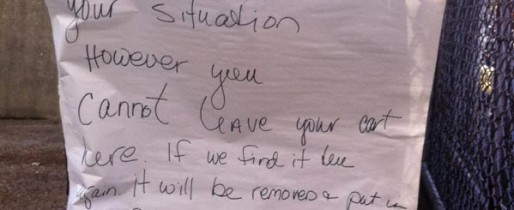 your situation
However you
Cannot leave your cart
here. If we find it here
again it will be removed & put in